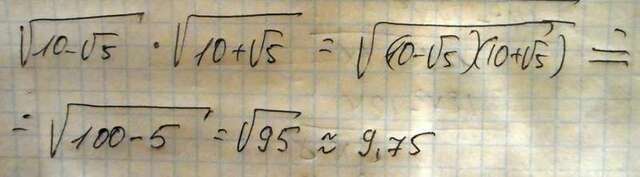 √(10-√5) · √(10+√5) = √((10-√5)(10+√5)) =
= √(100-5) = √95 ≈ 9,75